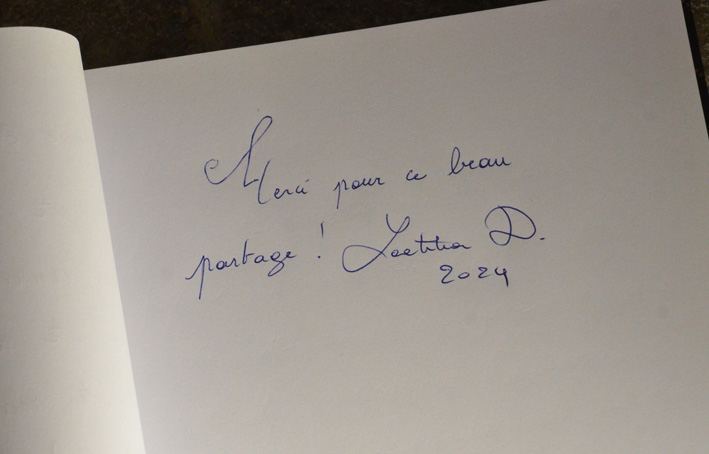 Merci pour ce beau
partage ! Laetitia D.
2024